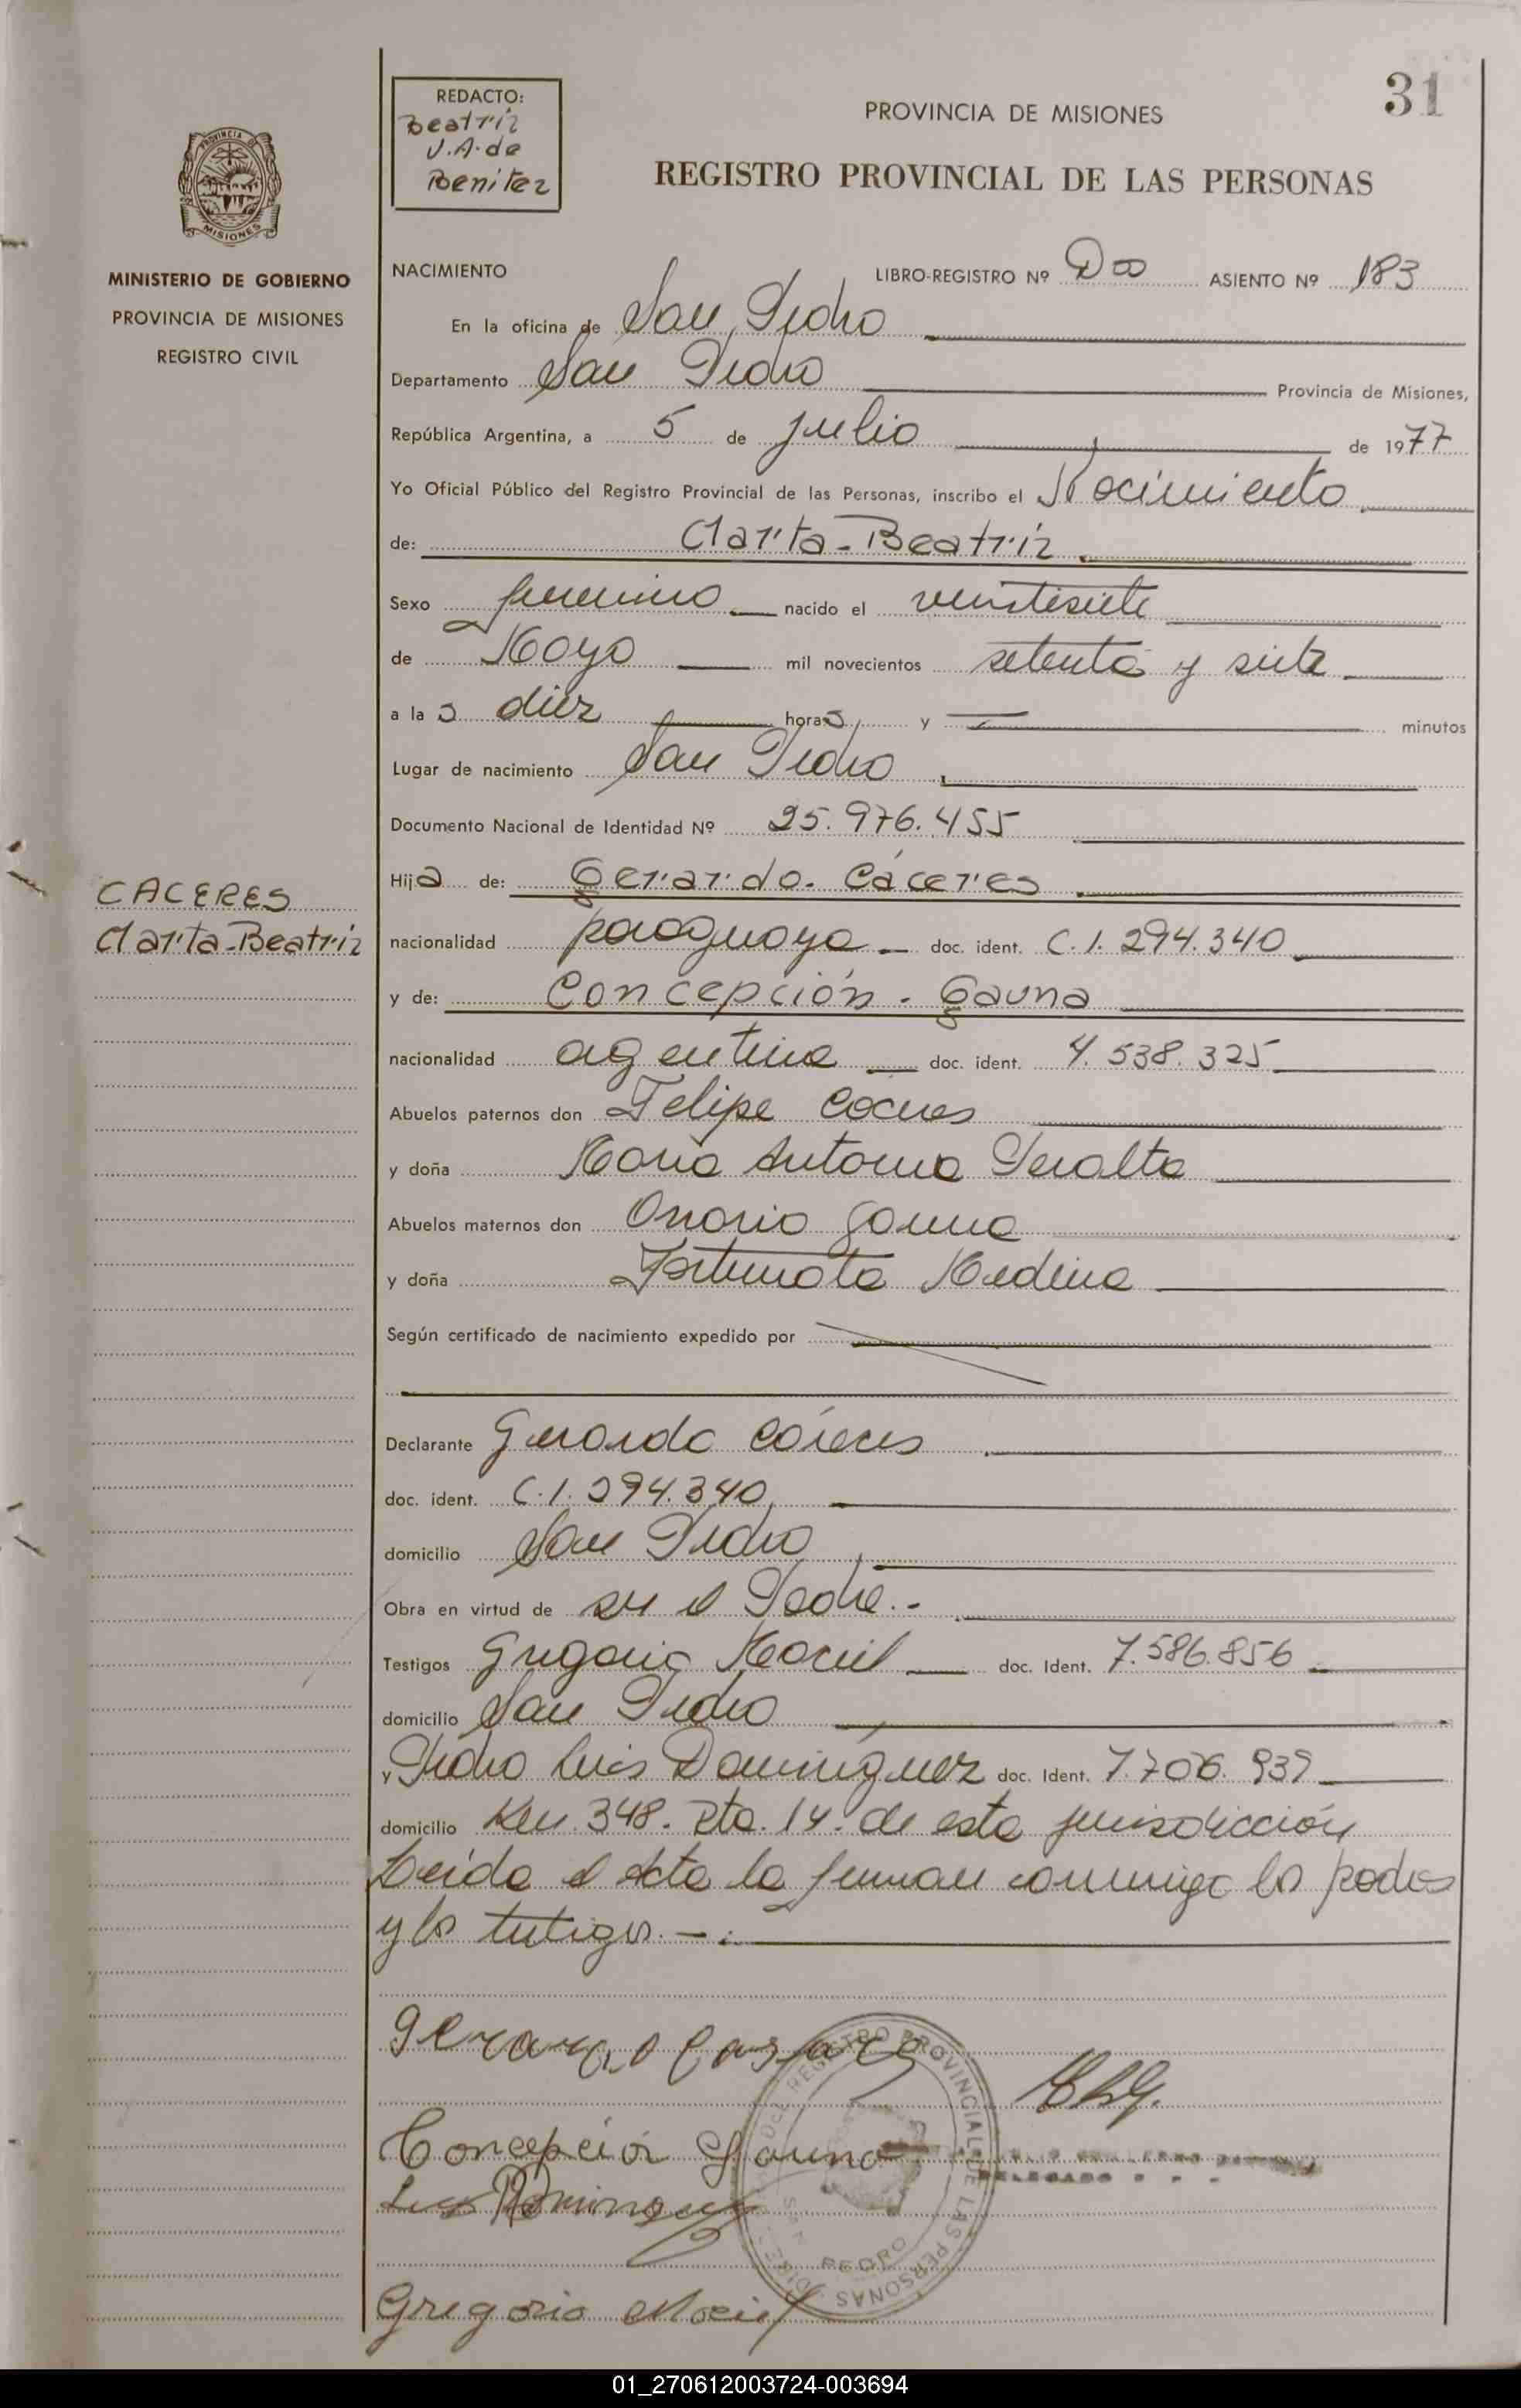 31
REDACTO:
Beatriz
V.A. de
Benitez
PROVINCIA DE MISIONES
REGISTRO PROVINCIAL DE LAS PERSONAS
PROVINCIA
MISIONES
MINISTERIO DE GOBIERNO
PROVINCIA DE MISIONES
REGISTRO CIVIL
NACIMIENTO LIBRO-REGISTRO Nº Dos ASIENTO Nº 183
En la oficina de San Pedro
Departamento San Pedro Provincia de Misiones,
República Argentina, a 5 de julio de 1977
Yo Oficial Público del Registro Provincial de las Personas, inscribo el Nacimiento
de: Clarita-Beatriz
Sexo femenino nacido el veintisiete
de Mayo mil novecientos setenta y siete
a la s diez horas y minutos
Lugar de nacimiento San Pedro
Documento Nacional de Identidad Nº 25.976.455
Hija de: Gerardo. Cáceres
CACERES
Clarita-Beatriz
nacionalidad paraguaya doc. ident. C.I. 294.340
y de: Concepción. Gauna
nacionalidad agentina doc. ident. 4.538.325
Abuelos paternos don Felipe Caceres
y doña Maria Antonia Peralta
Abuelos maternos don Onorio Gauna
y doña Fortunata Medina
Según certificado de nacimiento expedido por
Declarante Gerardo Cáceres
doc. ident. C.I. 294.340
domicilio San Pedro
Obra en virtud de ser el Padre.-
Testigos Gregorio Maciel doc. Ident. 7.586.856
domicilio San Pedro
y Pedro Luis Domínguez doc. Ident. 7.706.939
domicilio Km. 348. Rta. 14. de esta jurisdicción
Leída el Acta la firman conmigo los padres
y los testigos.-
Gerardo Caseres
Concepción Gauna
Luis Dominguez
Gregorio Maciel
REGISTRO PROVINCIAL DE LAS PERSONAS
SAN PEDRO
DELEGADO
01_270612003724-003694